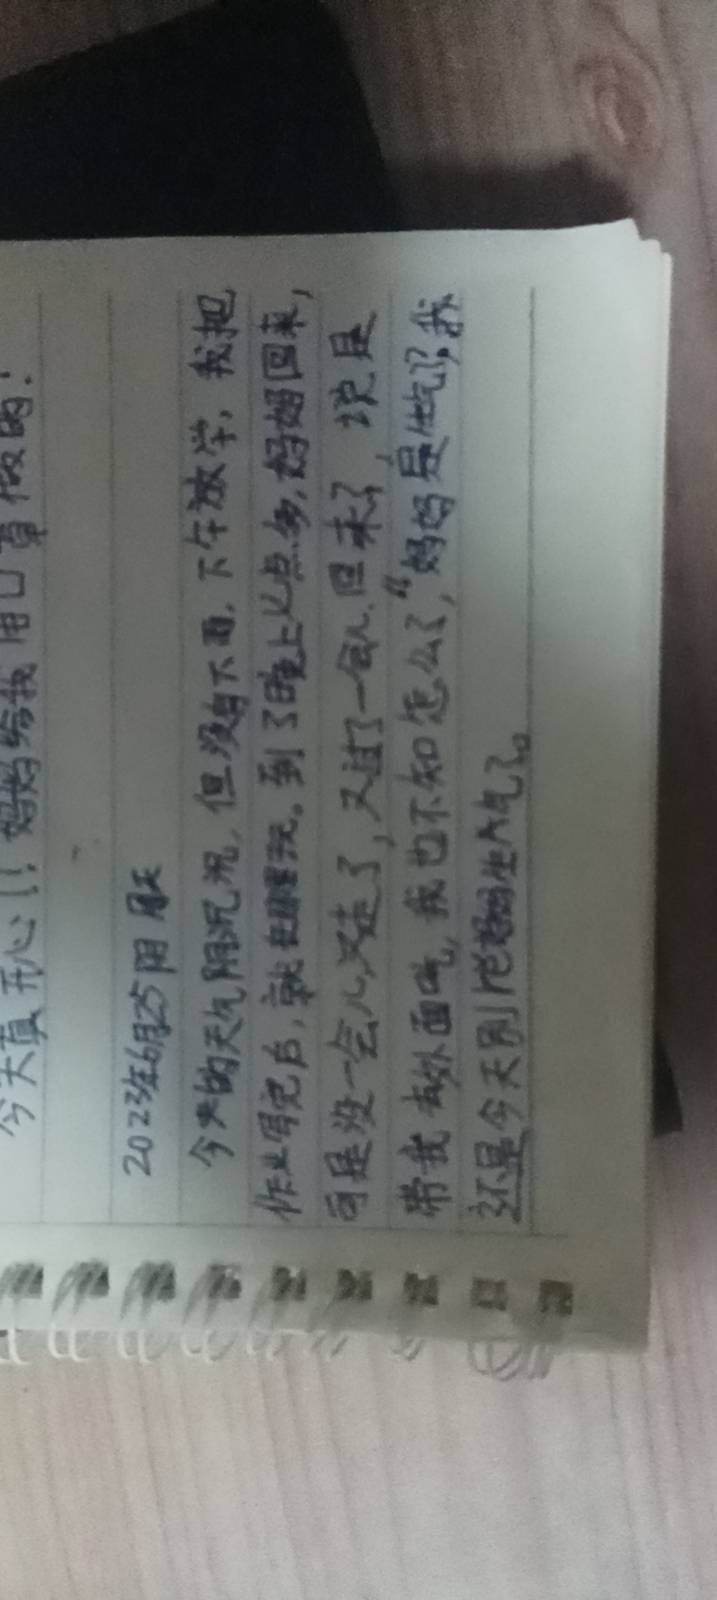 今天真开心!!妈妈给我用口算做的!
2023年6月25阴天
今天的天气阴沉沉,但没有下雨,下午放学,我把
作业写完后,就在那里玩。到了晚上七点多,妈妈回来,
可是没一会儿又走了,又过了一会儿,回来了,说是
带我去外面吃,我也不知怎么了,“妈妈是生气了,我
还是今天别惹妈妈生气了。